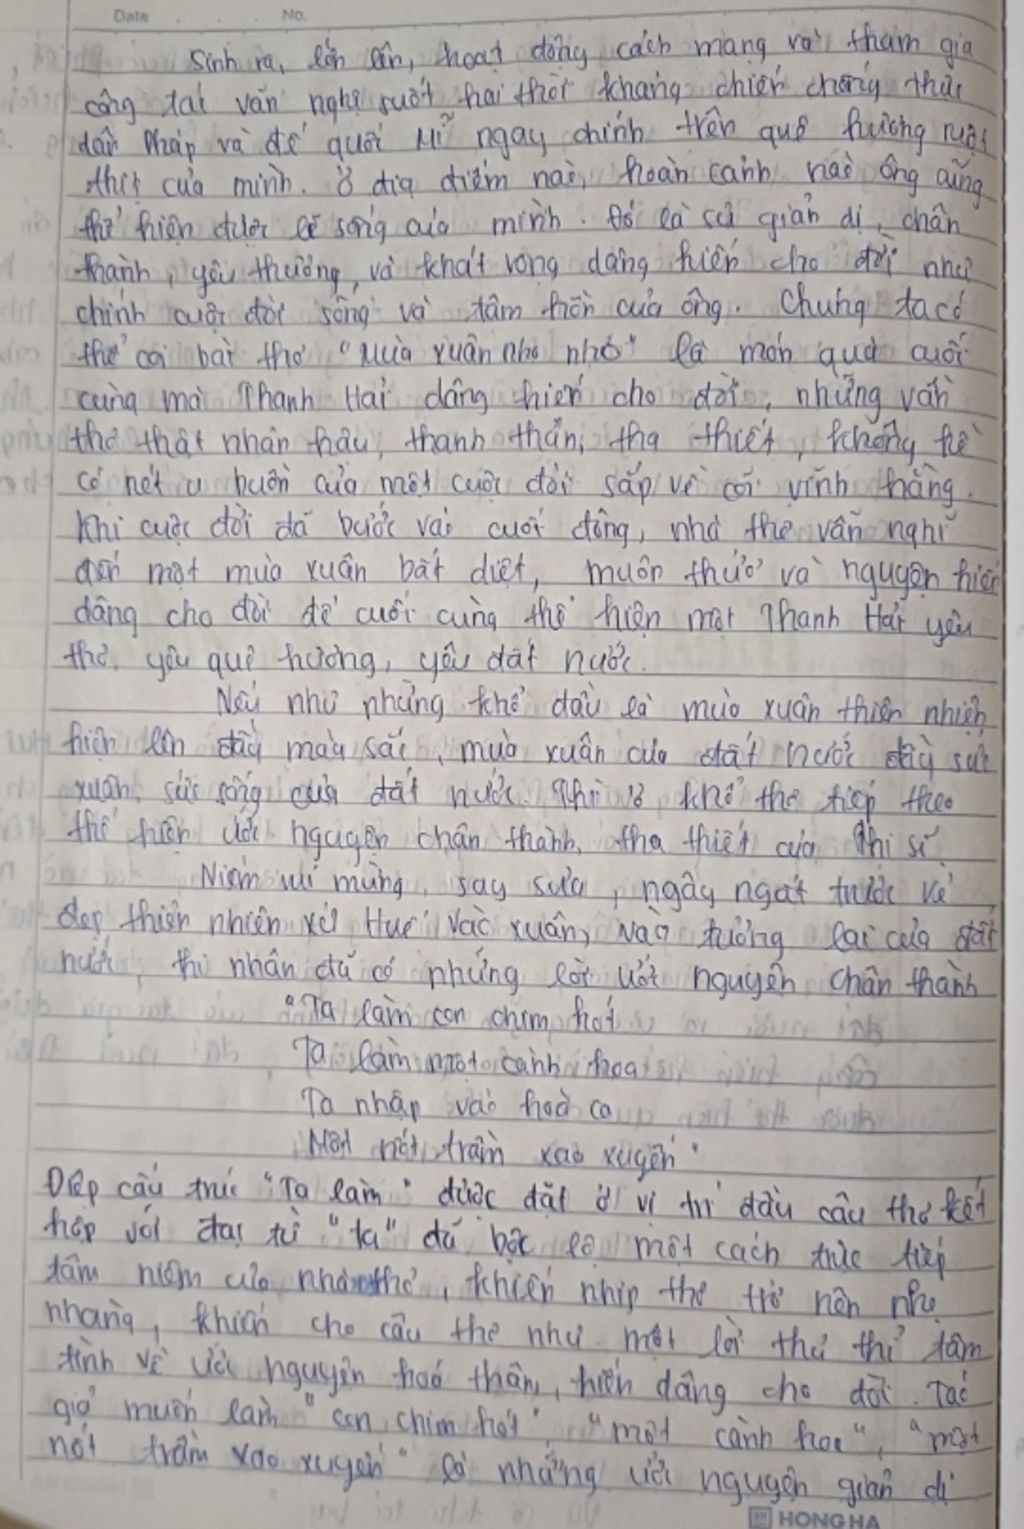 Date No.
Sinh ra, lớn lên, hoạt động cách mạng và tham gia
công tác văn nghệ suốt hai thời kháng chiến chống thực
dân Pháp và đế quốc Mĩ ngay chính trên quê hương ruột
thịt của mình. Ở địa điểm nào, hoàn cảnh nào ông cũng
thể hiện được lẽ sống của mình. Đó là sự giản dị, chân
thành, yêu thương, và khát vọng dâng hiến cho đời như
chính cuộc đời sống và tâm hồn của ông. Chúng ta có
thể coi bài thơ "Mùa xuân nho nhỏ" là món quà cuối
cùng mà Thanh Hải dâng hiến cho đời, những vần
thơ thật nhân hậu, thanh thản, tha thiết, không hề
có nét u buồn của một cuộc đời sắp về cõi vĩnh hằng.
Khi cuộc đời đã bước vào cuối đông, nhà thơ vẫn nghĩ
đến một mùa xuân bất diệt, muôn thuở và nguyện hiến
dâng cho đời để cuối cùng thể hiện một Thanh Hải yêu
thơ, yêu quê hương, yêu đất nước.
Nếu như những khổ đầu là mùa xuân thiên nhiên
hiện lên đầy màu sắc, mùa xuân của đất nước đầy sức
xuân, sức sống của đất nước. Thì khổ thơ tiếp theo
thể hiện ước nguyện chân thành, tha thiết của thi sĩ.
Niềm vui mừng, say sưa, ngây ngất trước vẻ
đẹp thiên nhiên xứ Huế vào xuân, vào tương lai của đất
nước, thi nhân đã có những lời ước nguyện chân thành
"Ta làm con chim hót
Ta làm một cành hoa
Ta nhập vào hoà ca
Một nốt trầm xao xuyến"
Điệp cấu trúc "Ta làm" được đặt ở vị trí đầu câu thơ kết
hợp với đại từ "ta" đã bộc lộ một cách trực tiếp
tâm niệm của nhà thơ, khiến nhịp thơ trở nên nhẹ
nhàng, khiến cho câu thơ như một lời thủ thỉ tâm
tình về ước nguyện hoá thân, hiến dâng cho đời. Tác
giả muốn làm "con chim hót", "một cành hoa", "một
nốt trầm xao xuyến" là những ước nguyện giản dị
HONG HA